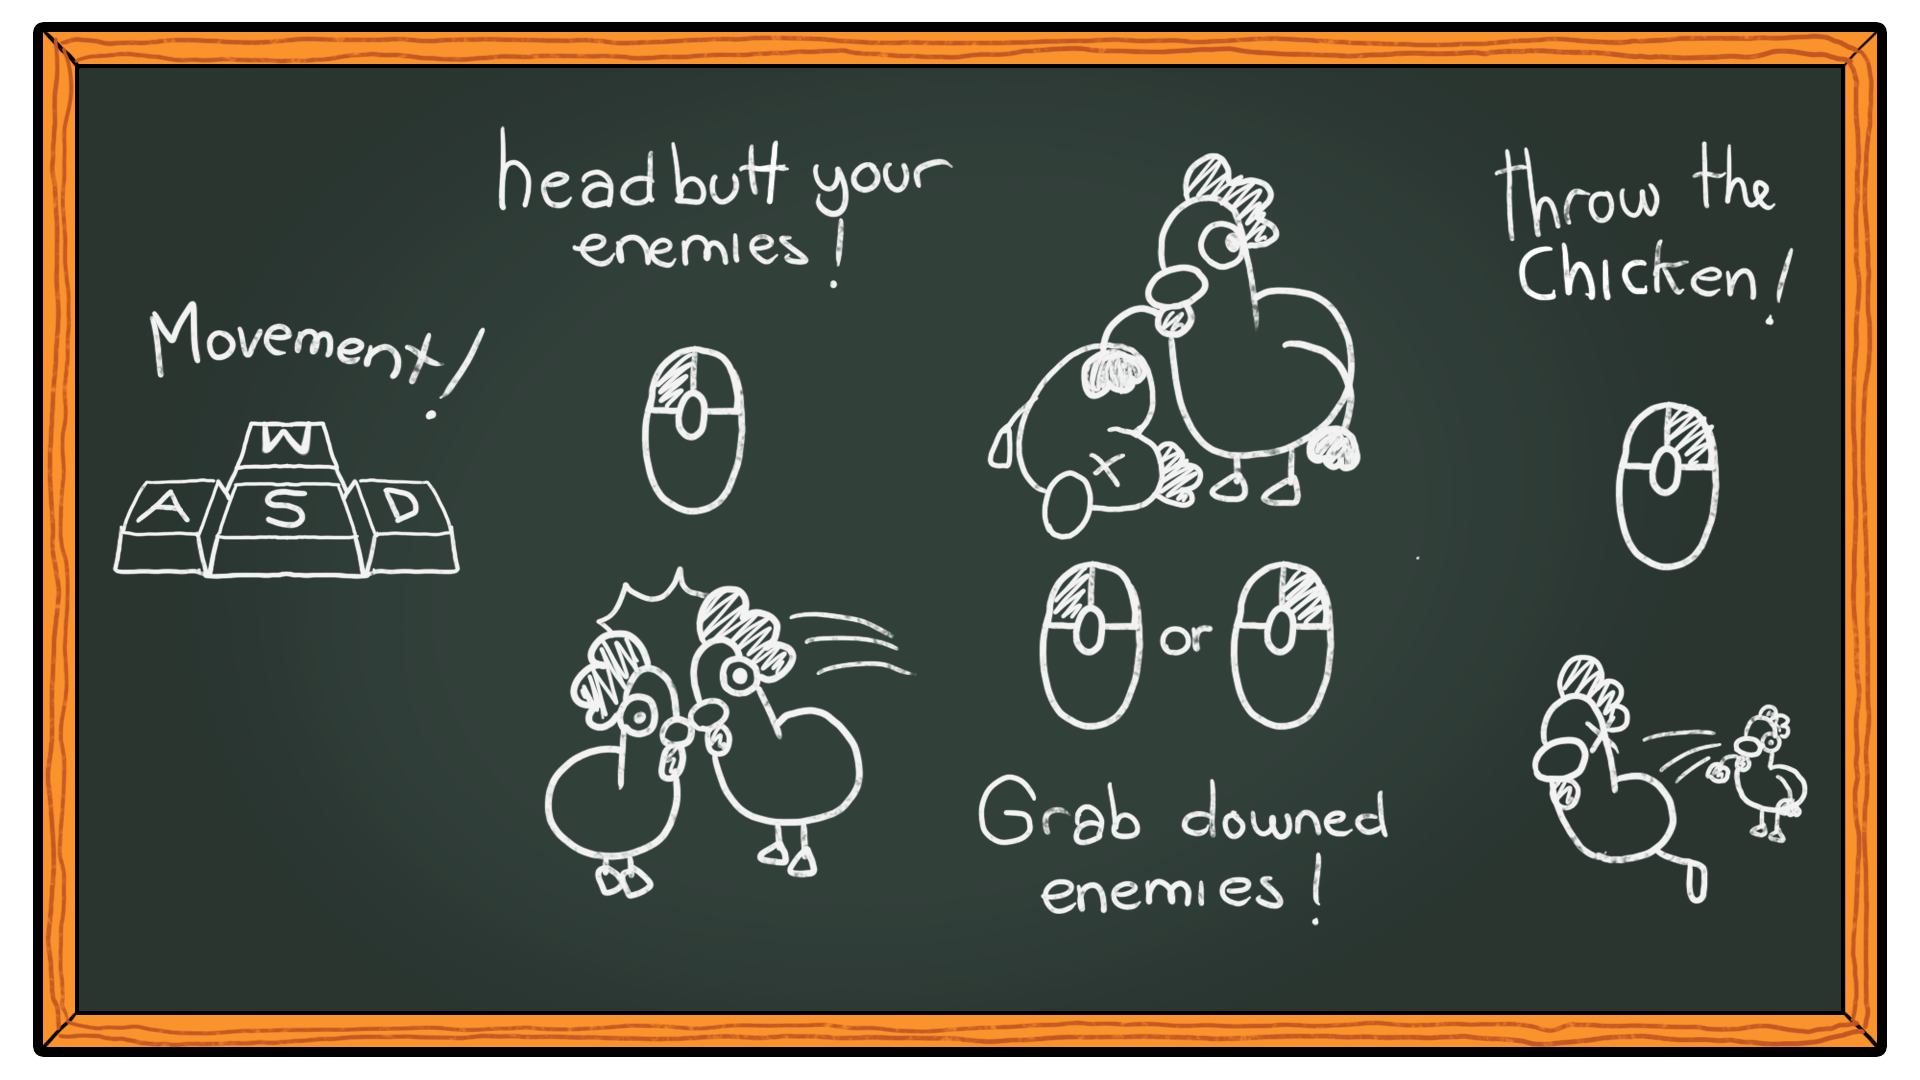 Movement!
W
A S D
headbutt your
enemies!
or
Grab downed
enemies!
throw the
Chicken!